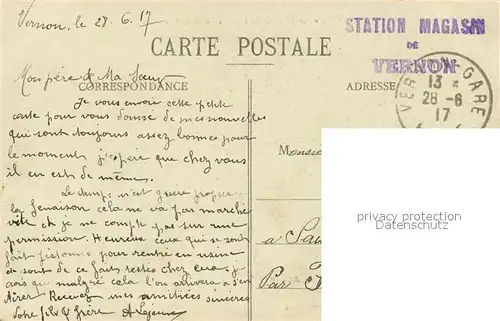 Vernon, le 28. 6. 17
STATION MAGASIN
DE
VERNON
CARTE POSTALE
CORRESPONDANCE
ADRESSE
VERNON-GARE
13
28-6
17
Mon père & Ma Sœur
Je vous envoie cette petite
carte pour vous donner de mes nouvelles
qui sont toujours assez bonnes pour
le moment j'espère que chez vous
il en est de même.
Le temps n'est guère propice
la fenaison cela ne va pas marcher
vite et je ne compte pas sur une
permission. Heureux ceux qui se sont
fait pour rentrer en usine
de sont de ce fait restés chez ceux. je
crois que malgré cela l'on arrivera à s'en
tirer Recevez mes amitiés sincères
Votre fils & frère A Lejeune
Monsieur
à
Par
privacy protection
watermark